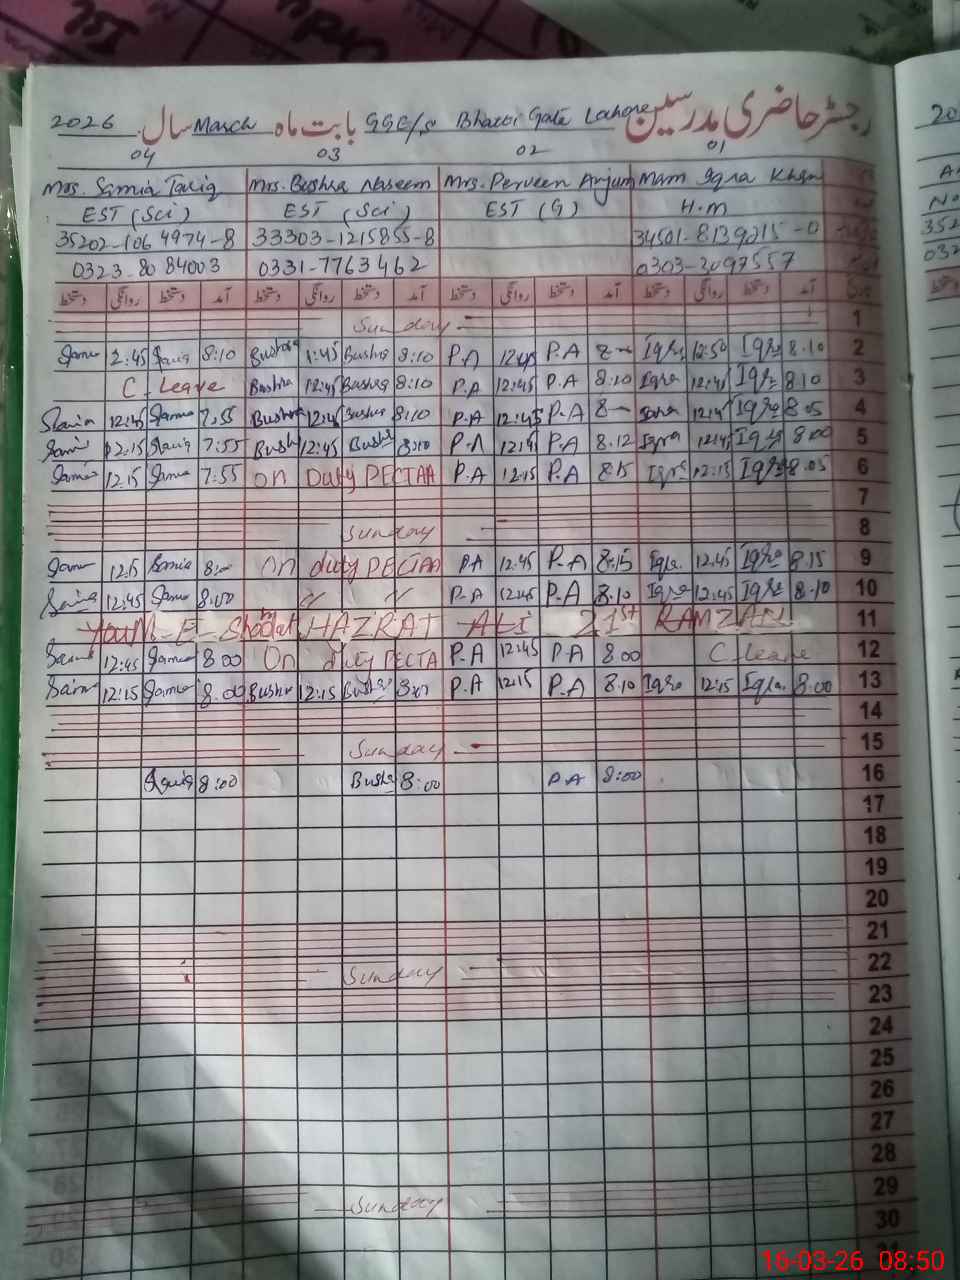 2026 سال March بابت ماہ GGE/S Bhatti Gate Lahore رجسٹر حاضری مدرسین
04 03 02 01
Mrs. Samia Tariq Mrs. Bushra Naseem Mrs. Perveen Anjum Mam Iqra Khan
EST (Sci) EST (Sci) EST (G) H.M
35202-1064974-8 33303-1215855-8 34501-8139215-0
0323-8084003 0331-7763462 0303-3097557
دستخط روانگی دستخط آمد دستخط روانگی دستخط آمد دستخط روانگی دستخط آمد دستخط روانگی دستخط آمد
Sunday 1
2:45 8:10 Bushra 1:45 Bushra 8:10 P.A 12:45 P.A 8- Iqra 12:50 Iqra 8.10 2
C. Leave Bushra 12:45 Bushra 8:10 P.A 12:45 P.A 8:10 Iqra 12:45 Iqra 8.10 3
Samia 12:45 7:55 Bushra 12:45 Bushra 8:10 P.A 12:45 P.A 8- Iqra 12:45 Iqra 8.05 4
12.15 7:55 Bush 12:45 Bush 8:10 P.A 12:45 P.A 8.12 Iqra 12:45 Iqra 8.00 5
12.15 7:55 on Duty PECTAA P.A 12:15 P.A 8.15 Iqra 12:15 Iqra 8.05 6
7
Sunday 8
Samia 8:- on duty PECTAA P.A 12:45 P.A 8:15 Iqra 12.45 Iqra 8.15 9
12:45 8:00 〃 〃 P.A 12:45 P.A 8.10 Iqra 12:45 Iqra 8.10 10
YouM-E-Shadat HAZRAT ALI 21st RAMZAN 11
12:45 8 00 On duty PECTA P.A 12:45 P.A 8.00 C. leave 12
12:15 8.00 Bushra 12:15 Bushra P.A 12:15 P.A 8.10 Iqra 12:15 Iqra 8.00 13
14
Sunday 15
8:00 Bushra 8:00 P.A 8:00 16
17
18
19
20
21
Sunday 22
23
24
25
26
27
28
Sunday 29
30
16-03-26 08:50